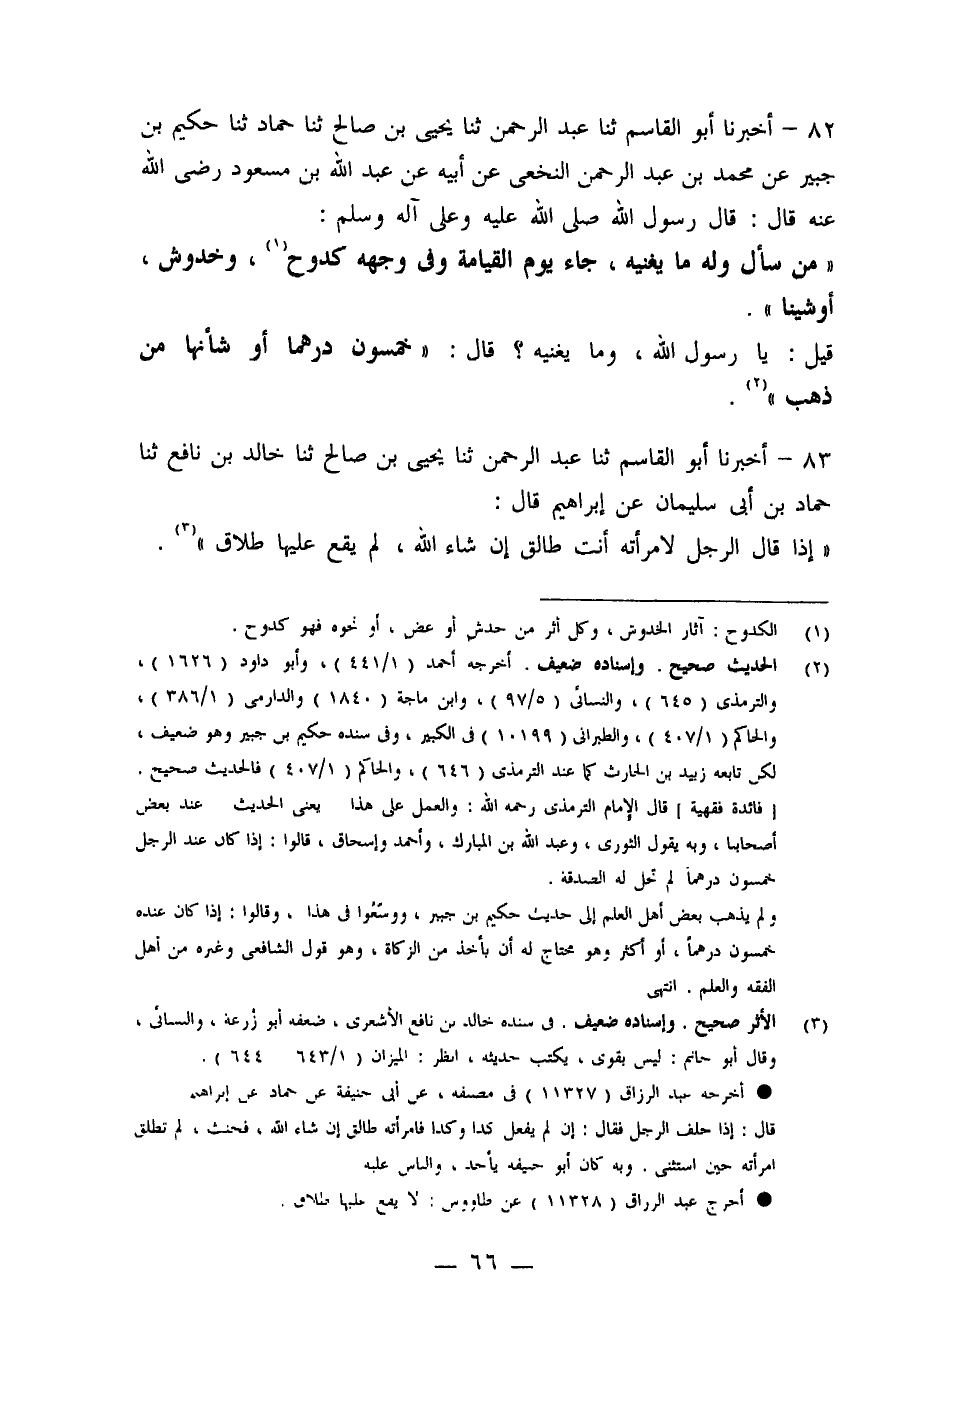 ٨٢ – أخبرنا أبو القاسم ثنا عبد الرحمن ثنا يحيى بن صالح ثنا حماد ثنا حكيم بن
جبير عن محمد بن عبد الرحمن النخعى عن أبيه عن عبد الله بن مسعود رضى الله
عنه قال : قال رسول الله صلى الله عليه وعلى آله وسلم :
« من سأل وله ما يغنيه ، جاء يوم القيامة وفى وجهه كدوح(١) ، وخدوش ،
أوشينا » .
قيل : يا رسول الله ، وما يغنيه ؟ قال : « خمسون درهما أو شأنها من
ذهب »(٢) .
٨٣ – أخبرنا أبو القاسم ثنا عبد الرحمن ثنا يحيى بن صالح ثنا خالد بن نافع ثنا
حماد بن أبى سليمان عن إبراهيم قال :
« إذا قال الرجل لامرأته أنت طالق إن شاء الله ، لم يقع عليها طلاق »(٣) .
(١) الكدوح : آثار الخدوش ، وكل أثر من خدش أو عض ، أو نحوه فهو كدوح .
(٢) الحديث صحيح . وإسناده ضعيف . أخرجه أحمد ( ٤٤١/١ ) ، وأبو داود ( ١٦٢٦ ) ،
والترمذى ( ٦٤٥ ) ، والنسائى ( ٩٧/٥ ) ، وابن ماجة ( ١٨٤٠ ) والدارمى ( ٣٨٦/١ ) ،
والحاكم ( ٤٠٧/١ ) ، والطبرانى ( ١٠١٩٩ ) فى الكبير ، وفى سنده حكيم بن جبير وهو ضعيف ،
لكن تابعه زبيد بن الحارث كما عند الترمذى ( ٦٤٦ ) ، والحاكم ( ٤٠٧/١ ) فالحديث صحيح .
[ فائدة فقهية ] قال الإمام الترمذى رحمه الله : والعمل على هذا يعنى الحديث عند بعض
أصحابنا ، وبه يقول الثورى ، وعبد الله بن المبارك ، وأحمد وإسحاق ، قالوا : إذا كان عند الرجل
خمسون درهماً لم تحل له الصدقة .
ولم يذهب بعض أهل العلم إلى حديث حكيم بن جبير ، ووسّعُوا فى هذا ، وقالوا : إذا كان عنده
خمسون درهماً ، أو أكثر وهو محتاج له أن يأخذ من الزكاة ، وهو قول الشافعى وغيره من أهل
الفقه والعلم . انتهى
(٣) الأثر صحيح . وإسناده ضعيف . فى سنده خالد بن نافع الأشعرى ، ضعفه أبو زُرعة ، والنسائى ،
وقال أبو حاتم : ليس بقوى ، يكتب حديثه ، انظر : الميزان ( ٦٤٣/١ ٦٤٤ ) .
● أخرجه عبد الرزاق ( ١١٣٢٧ ) فى مصنفه ، عن أبى حنيفة عن حماد عن إبراهيم
قال : إذا حلف الرجل فقال : إن لم يفعل كذا وكذا فامرأته طالق إن شاء الله ، فحنث ، لم تطلق
امرأته حين استثنى . وبه كان أبو حنيفة يأخذ ، والناس عليه
● أخرج عبد الرزاق ( ١١٣٢٨ ) عن طاووس : لا يقع عليها طلاق .
— ٦٦ —